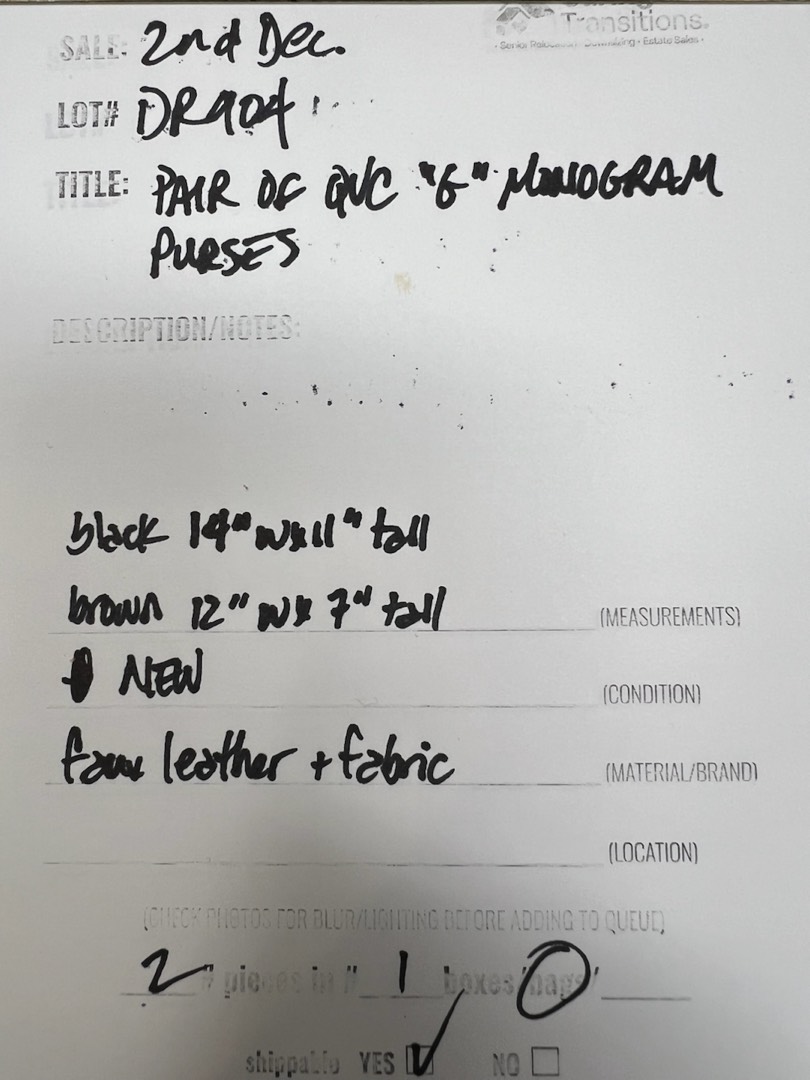 Transitions.
• Senior Relocation • Downsizing • Estate Sales •
SALE: 2nd Dec.
LOT# DR904
TITLE: PAIR OF QVC "G" MONOGRAM
PURSES
DESCRIPTION/NOTES:
black 14" w x 11" tall
brown 12" w x 7" tall (MEASUREMENTS)
NEW (CONDITION)
faux leather + fabric (MATERIAL/BRAND)
(LOCATION)
(CHECK PHOTOS FOR BLUR/LIGHTING BEFORE ADDING TO QUEUE)
2 # pieces in # 1 boxes/bags/ 0
shippable YES NO